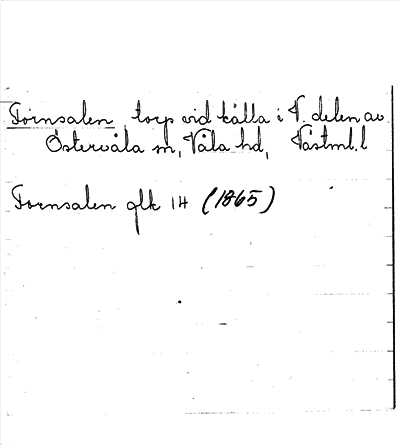 Törnsalen torp vid källa i V. delen av
Östervåla sn, Våla hd, Västml. l
Tornsalen glk 14 (1865)